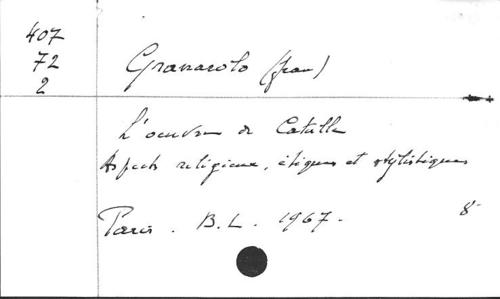 407
72
2
Granarolo (Jean)
L'oeuvre de Catulle
Aspects religieux, étiques et stylistiques
Paris. B.L. 1967. 8°